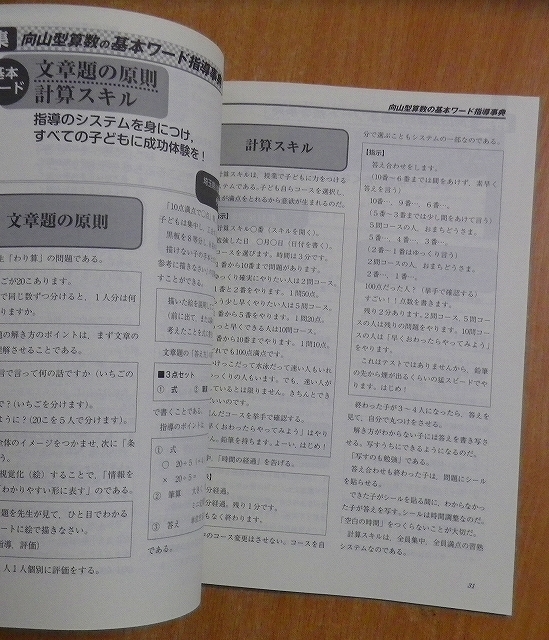 集 向山型算数の基本ワード指導事典
基本
ード
文章題の原則
計算スキル
指導のシステムを身につけ、
すべての子どもに成功体験を！
文章題の原則
「わり算」の問題である。
ごが20こあります。
で同じ数ずつ分けると、1人分は何
りますか。
題の解き方のポイントは、まず文章の
理解させることである。
言で言って何の話ですか（いちごの
で？（いちごを分けます）。
ように？（20こを5人で分けます）。
全体のイメージをつかませ、次に「条
視覚化（絵）することで、「情報を
わかりやすい形に表す」のである。
題を先生が見て、ひと目でわかる
ートに絵で描きなさい。
指導、評価）
1人1人個別に評価をする。
「10点満点で
子どもは集中し
黒板を8等分し
描けない子の
参考に描きなさい
すことができる。
描いた絵を説明し
（前に出て、また
考えたことを式に
文章題の「答え
■3点セット
① 式
で書くことである。
指導のポイントは
① 式
○ 20÷5
× 20÷5＝
② 筆算
③ 答え
である。
向山型算数の基本ワード指導事典
計算スキル
計算スキルは、授業で子どもに力をつける
ステムである。子ども自らコースを選択し、
が満点をとれるから意欲が生まれるのだ。
計算スキル○番（スキルを開く）。
勉強した日 ○月○日（日付を書く）。
コースを選びます。時間は3分です。
1番から10番まで問題があります。
っくり確実にやりたい人は2問コース。
1番と2番をやります。1問50点。
う少し早くやりたい人は5問コース。
番から5番をやります。1問20点。
っと早くできる人は10問コース。
番から10番までやります。1問10点。
れでも100点満点です。
けっこだって水泳だって速い人もいれ
っくりの人もいます。でも、速い人が
ているとは限りません。きちんとでき
いいのです。
んだコースを挙手で確認する。
く終わったらやってみよう」はやり
ん。鉛筆を持ちます。よーい、はじめ！
、「時間の経過」を告げる。
分経過。
分経過、残り1分です。
もなく終わります。
のコース変更はさせない。コースを自
分で選ぶこともシステムの一部なのである。
【指示】
答え合わせをします。
（10番～6番までは間をあけず、素早く
答えを言う）
10番…、9番…、6番…、
（5番～3番までは少し間をあけて言う）
5問コースの人、おまちどうさま。
5番…、4番…、3番…、
（2番～1番はゆっくり言う）
2問コースの人、おまちどうさま。
2番…、1番…
100点だった人？（挙手で確認する）
すごい！！点数を書きます。
残り2分あります。2問コース、5問コー
スの人は残りの問題をやります。10問コー
スの人は「早くおわったらやってみよう」
をやります。
これはテストではありませんから、鉛筆
の先から煙が出るくらいの猛スピードでや
ります。はじめ！
終わった子が3～4人になったら、答えを
見て、自分で丸つけをさせる。
解き方がわからない子には答えを書き写さ
せる。写すうちにできるようになるのだ。
「写すのも勉強」である。
答え合わせも終わった子は、問題にシール
を貼らせる。
できた子がシールを貼る間に、わからなかっ
た子が答えを写す。シールは時間調整なのだ。
「空白の時間」をつくらないことが大切だ。
計算スキルは、全員集中、全員満点の習熟
システムなのである。
33